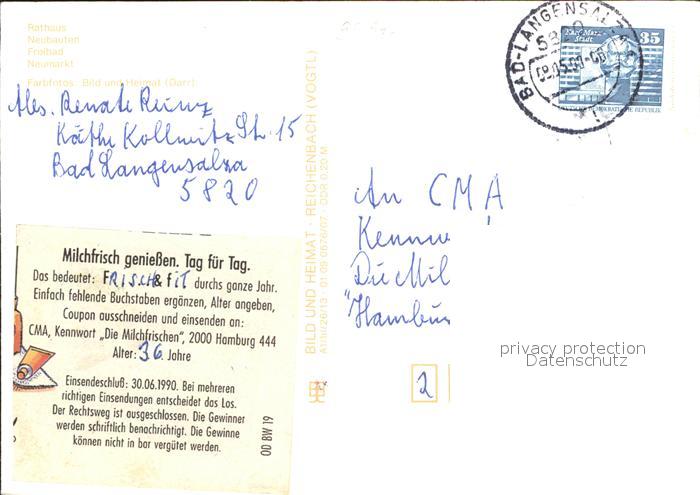 Rathaus
Neubauten
Freibad
Neumarkt
Farbfotos: Bild und Heimat (Darr)
Abs. Renate
Käthe Kollwitz Str. 15
Bad Langensalza
5820
Milchfrisch genießen. Tag für Tag.
Das bedeutet: FRISCH & fiT durchs ganze Jahr.
Einfach fehlende Buchstaben ergänzen, Alter angeben,
Coupon ausschneiden und einsenden an:
CMA, Kennwort „Die Milchfrischen", 2000 Hamburg 444
Alter: 36 Jahre
Einsendeschluß: 30.06.1990. Bei mehreren
richtigen Einsendungen entscheidet das Los.
Der Rechtsweg ist ausgeschlossen. Die Gewinner
werden schriftlich benachrichtigt. Die Gewinne
können nicht in bar vergütet werden.
OD BW 19
BILD UND HEIMAT · REICHENBACH (VOGTL)
BAD-LANGENSALZA
Karl-Marx-
Stadt
35
DEUTSCHE DEMOKRATISCHE REPUBLIK
An CMA
Kennw
Die Mil
Hambur
2
privacy protection
Datenschutz